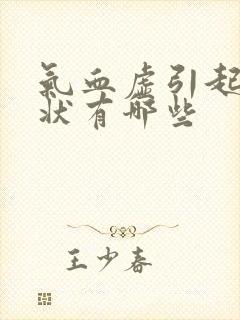 氣血虛引起
狀有哪些
王少春